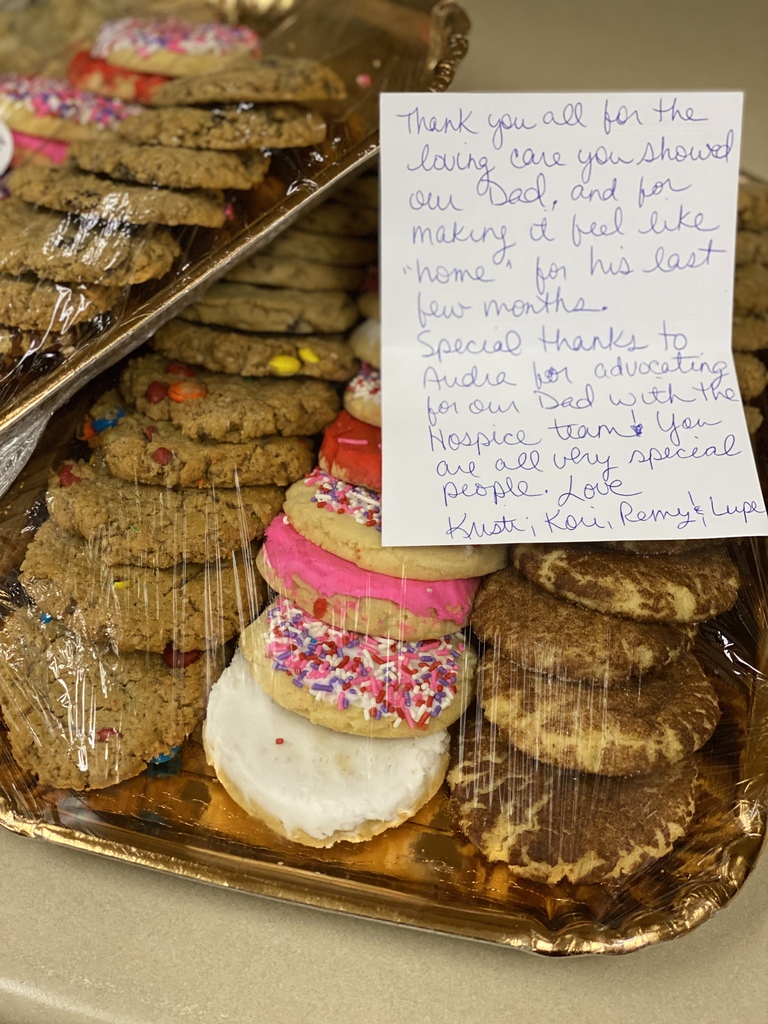 Thank you all for the
loving care you showed
our Dad, and for
making it feel like
"home" for his last
few months.
Special thanks to
Audra for advocating
for our Dad with the
Hospice team! You
are all very special
people. Love
Kristi, Kori, Remy & Lupe